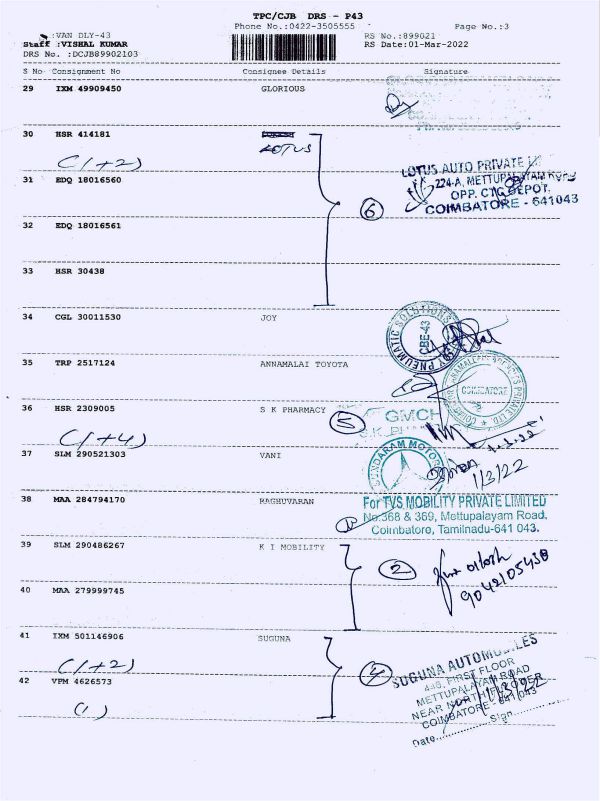 TPC/CJB DRS - P43
Phone No.:0422-3505555 Page No.:3
:VAN DLY-43 RS No.:899021
Staff :VISHAL KUMAR RS Date:01-Mar-2022
DRS No. :DCJB89902103
S No Consignment No Consignee Details Signature
29 IXM 49909450 GLORIOUS
30 HSR 414181
LOTUS
(1+2)
LOTUS AUTO PRIVATE
31 EDQ 18016560
224-A, METTUPALAYAM ROAD
OPP. CTC DEPOT,
COIMBATORE - 641043
6
32 EDQ 18016561
33 HSR 30438
34 CGL 30011530 JOY
JOY PNEUMATIC SOLUTIONS
CBE-43
35 TRP 2517124 ANNAMALAI TOYOTA
COIMBATORE
36 HSR 2309005 S K PHARMACY
5 GMCH
S.K. PHARMACY
(1+4)
1.3.22
37 SLM 290521303 VANI
SUNDARAM MOTORS
1/3/22
38 MAA 284794170 RAGHUVARAN
For TVS MOBILITY PRIVATE LIMITED
No.368 & 369, Mettupalayam Road,
Coimbatore, Tamilnadu-641 043.
39 SLM 290486267 K I MOBILITY
2
9042105438
40 MAA 279999745
41 IXM 501146906 SUGUNA
(1+2)
4
SUGUNA AUTOMOBILES
FIRST FLOOR
METTUPALAYAM ROAD
42 VPM 4626573
NEAR NORTH
COIMBATORE - 641 043
(1)
Date Sign